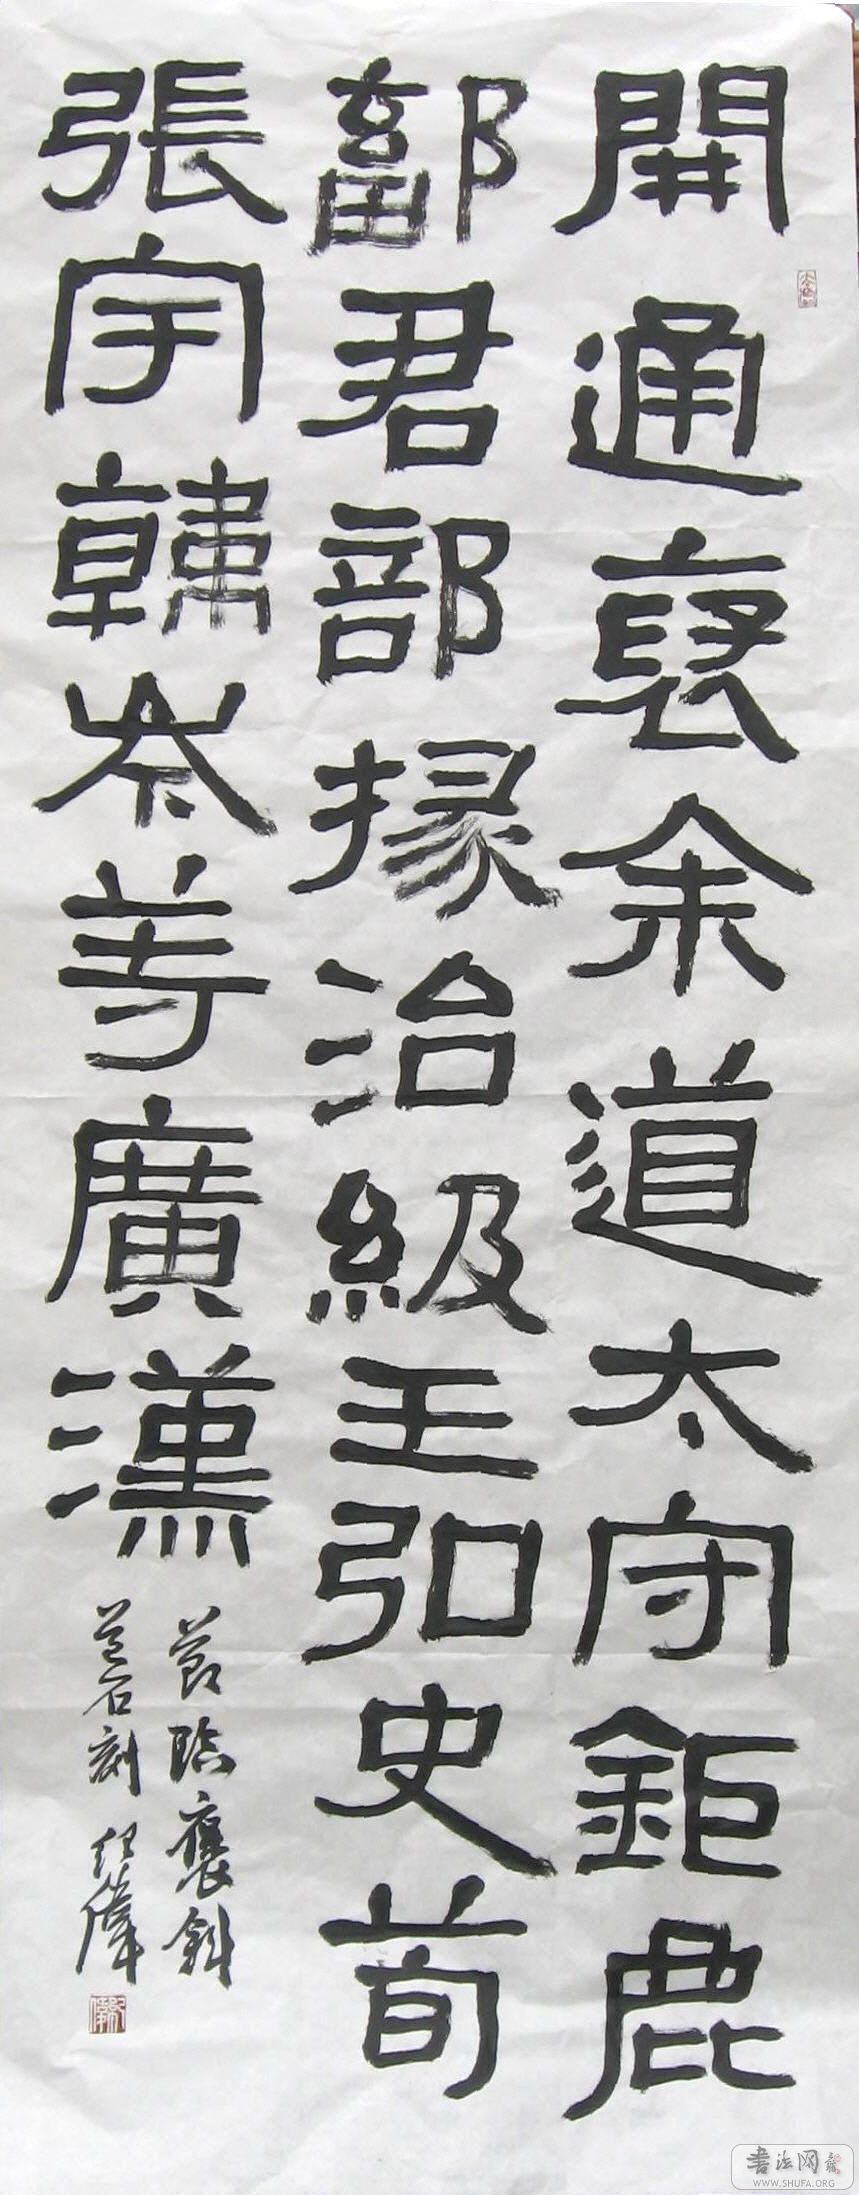 開通褒余道太守鉅鹿
鄐君部掾治級王弘史荀
張宇韓岑等廣漢
節臨褒斜
道石刻 紹偉
書法网
WWW.SHUFA.ORG